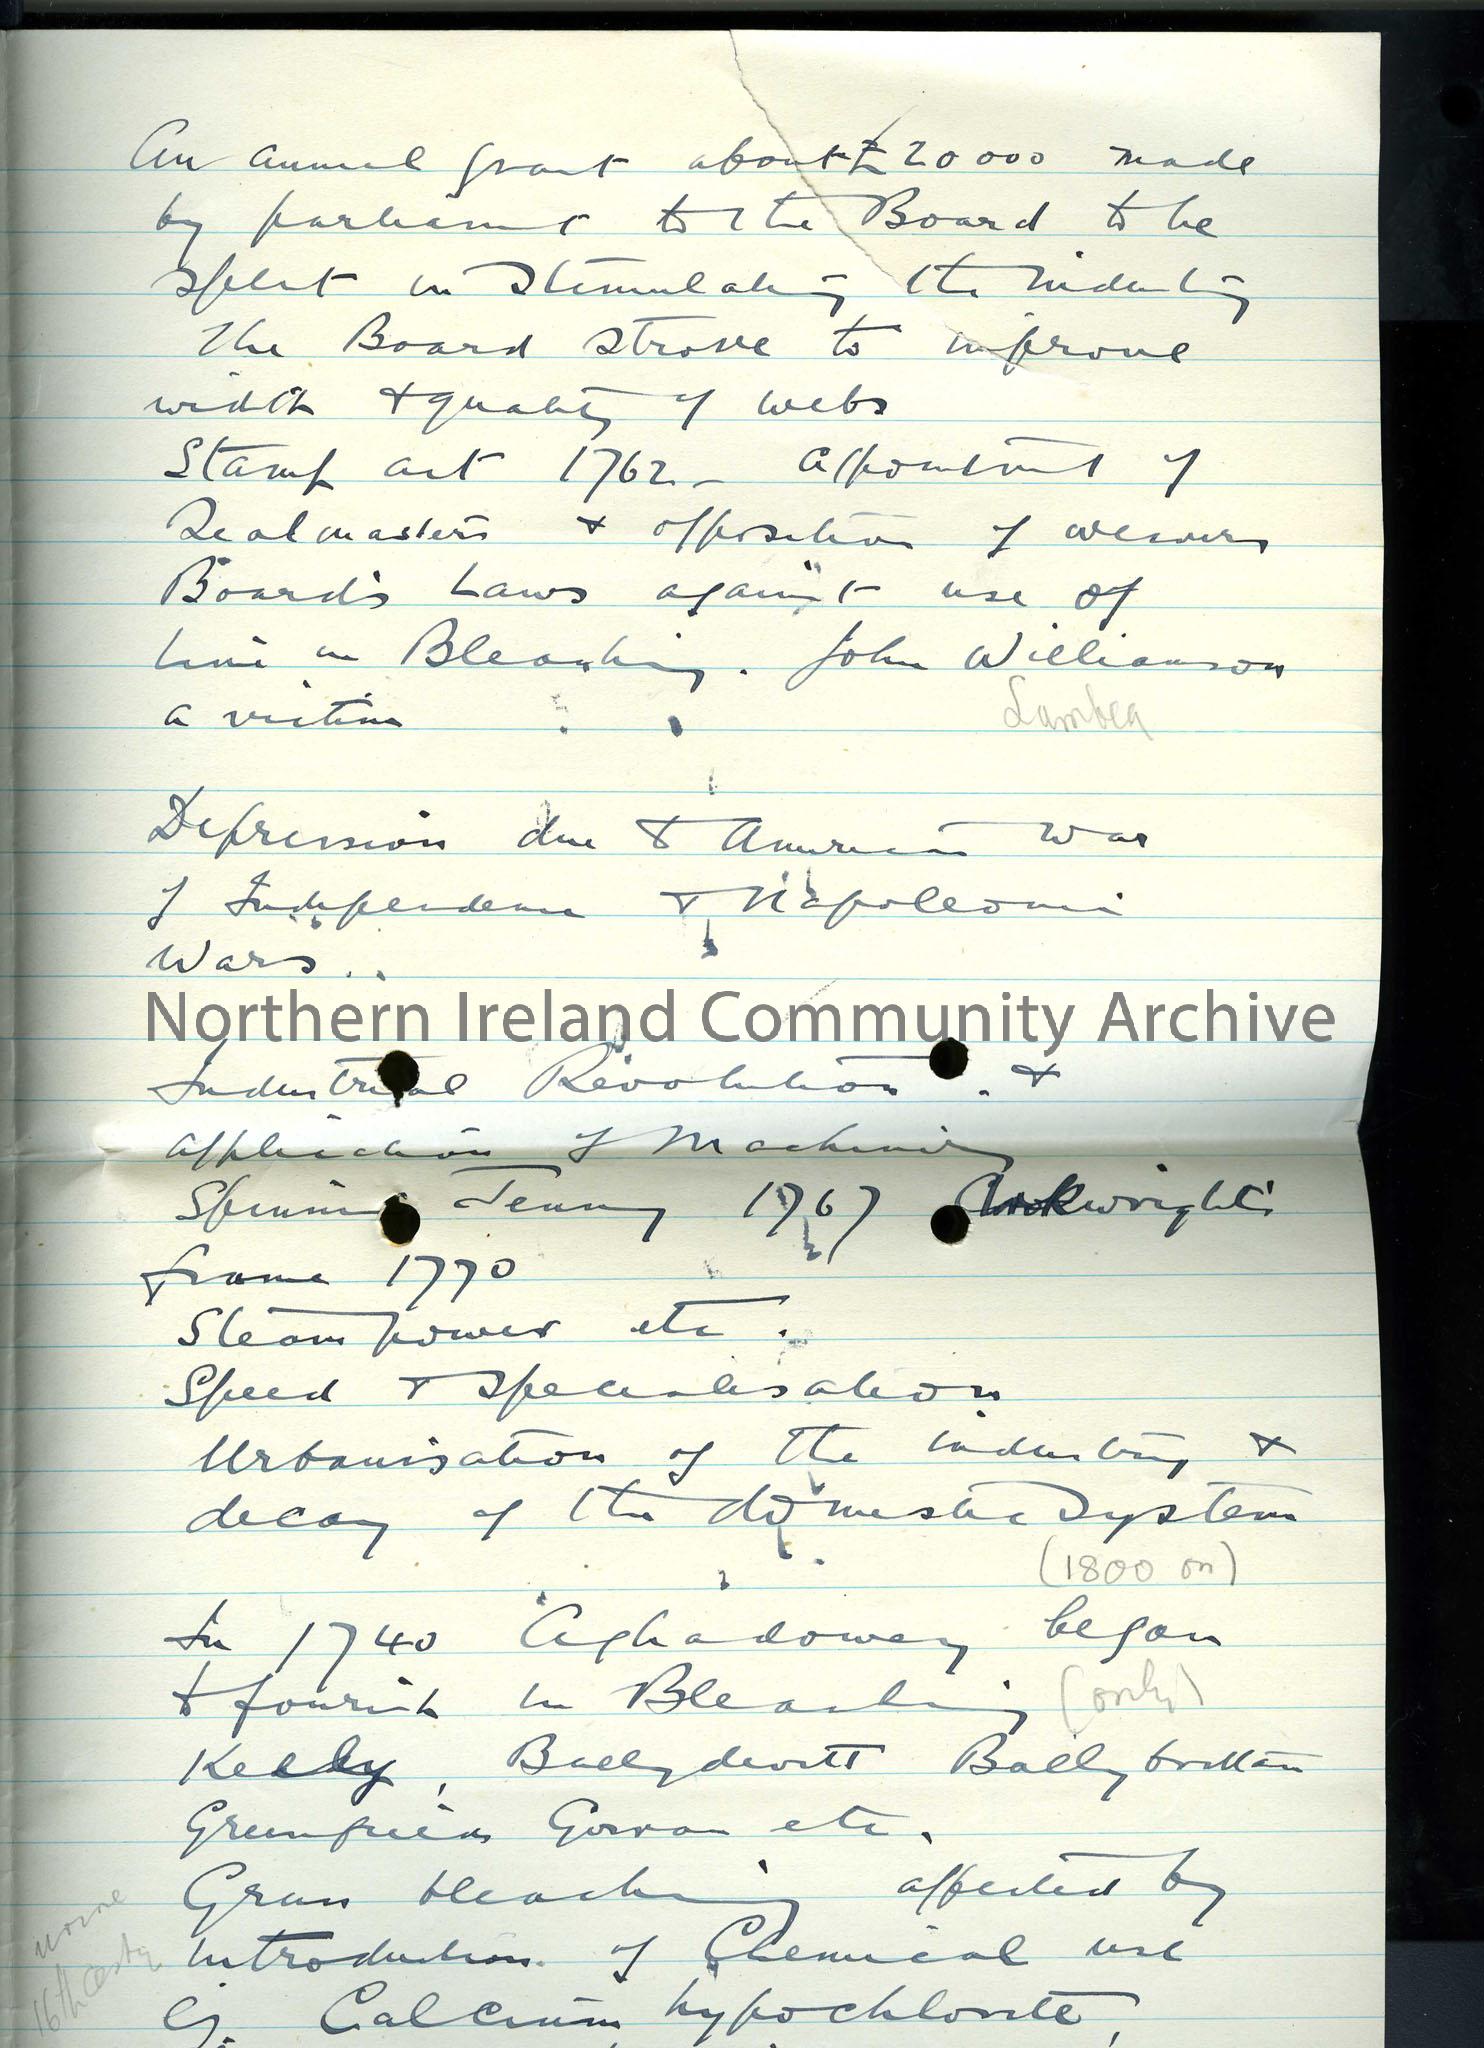 An annual grant about £20000 made
by parliament to the Board to be
spent in stimulating the industry
The Board strove to improve
width & quality of webs
Stamp act 1762 - appointment of
Sealmasters & opposition of weavers
Board's Laws against use of
lime in Bleaching. John Williamson
Lambeg
a victim
Depression due to American War
of Independence & Napoleonic
Wars..
Northern Ireland Community Archive
Industrial Revolution. &
application of Machinery
Spinning Jenny 1767 Arkwright's
frame 1770
Steam power etc.
Speed & specialisation
Urbanisation of the industry &
decay of the domestic system
(1800 on)
In 1740 Aghadowey began
to flourish in Bleaching (only)
Keely, Ballydevitt Ballybrittan
Greenfield Gorran etc.
Grass bleaching affected by
introduction of Chemical use
16th
eg. Calcium hypochlorite,